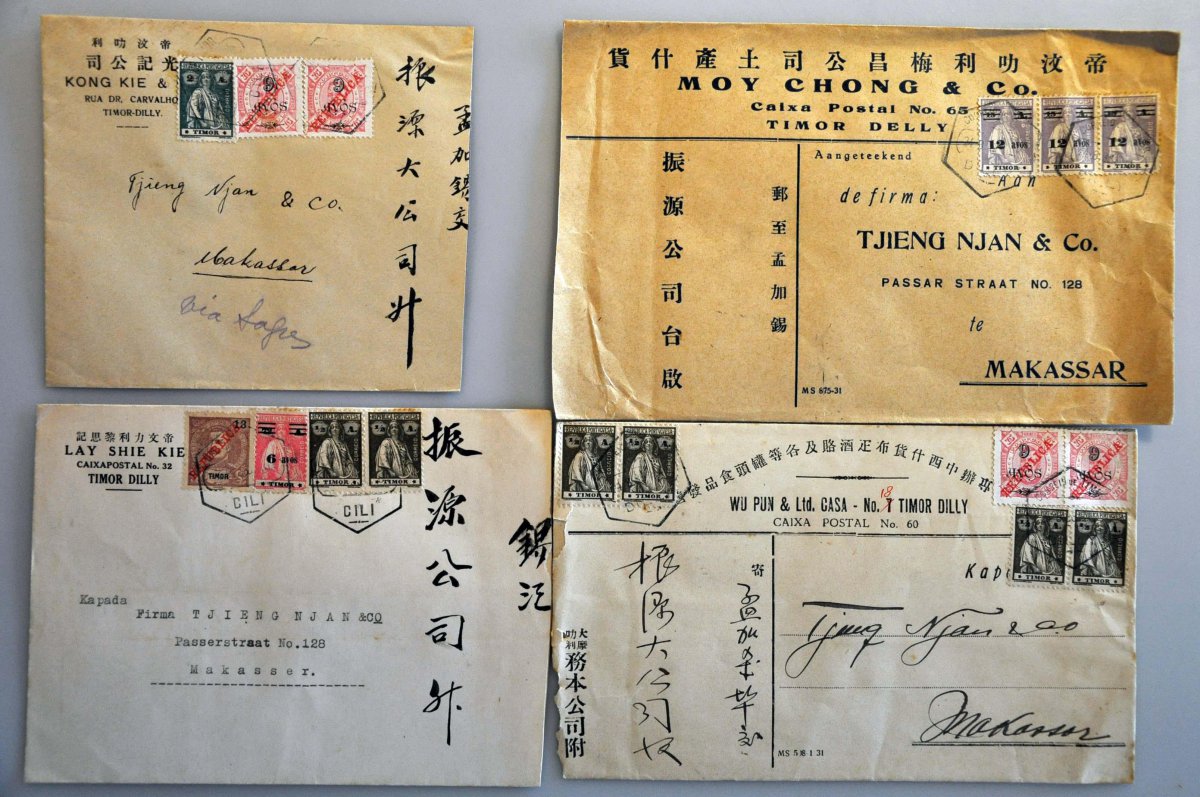 利叻汶帝
司公記光
KONG KIE &
RUA DR. CARVALHO
TIMOR-DILLY.
2 A.
TIMOR
9
AVOS
9
AVOS
振源大公司升
孟加錫交
Tjieng Njan & Co.
Makassar
via
貨什產土司公昌梅利叻汶帝
MOY CHONG & Co.
Caixa Postal No. 65
TIMOR DELLY
12 avos
TIMOR
12 avos
TIMOR
12 avos
TIMOR
振源公司台啟
郵至孟加錫
Aangeteekend
Aan
de firma:
TJIENG NJAN & Co.
PASSAR STRAAT NO. 128
te
MAKASSAR
MS 875-31
記思黎利力文帝
LAY SHIE KIE
CAIXAPOSTAL No. 32
TIMOR DILLY
TIMOR
6 avos
TIMOR
½ A.
TIMOR
½ A.
TIMOR
DILI
DILI
振源公司升
錫江
Kapada
Firma TJIENG NJAN &CO
Passerstraat No.128
Makasser.
REPUBLICA PORTUGUESA
½ A.
TIMOR
REPUBLICA PORTUGUESA
½ A.
TIMOR
發品食頭罐等各及賂酒疋布貨什西中辦
WU PUN & Ltd. CASA - No. 18 TIMOR DILLY
CAIXA POSTAL No. 60
9
AVOS
9
AVOS
½ A.
TIMOR
½ A.
TIMOR
寄
振源大公司收
孟加
叻利
務本公司附
Kap
Tjieng Njan & Co
Makassar
MS 518 1 31